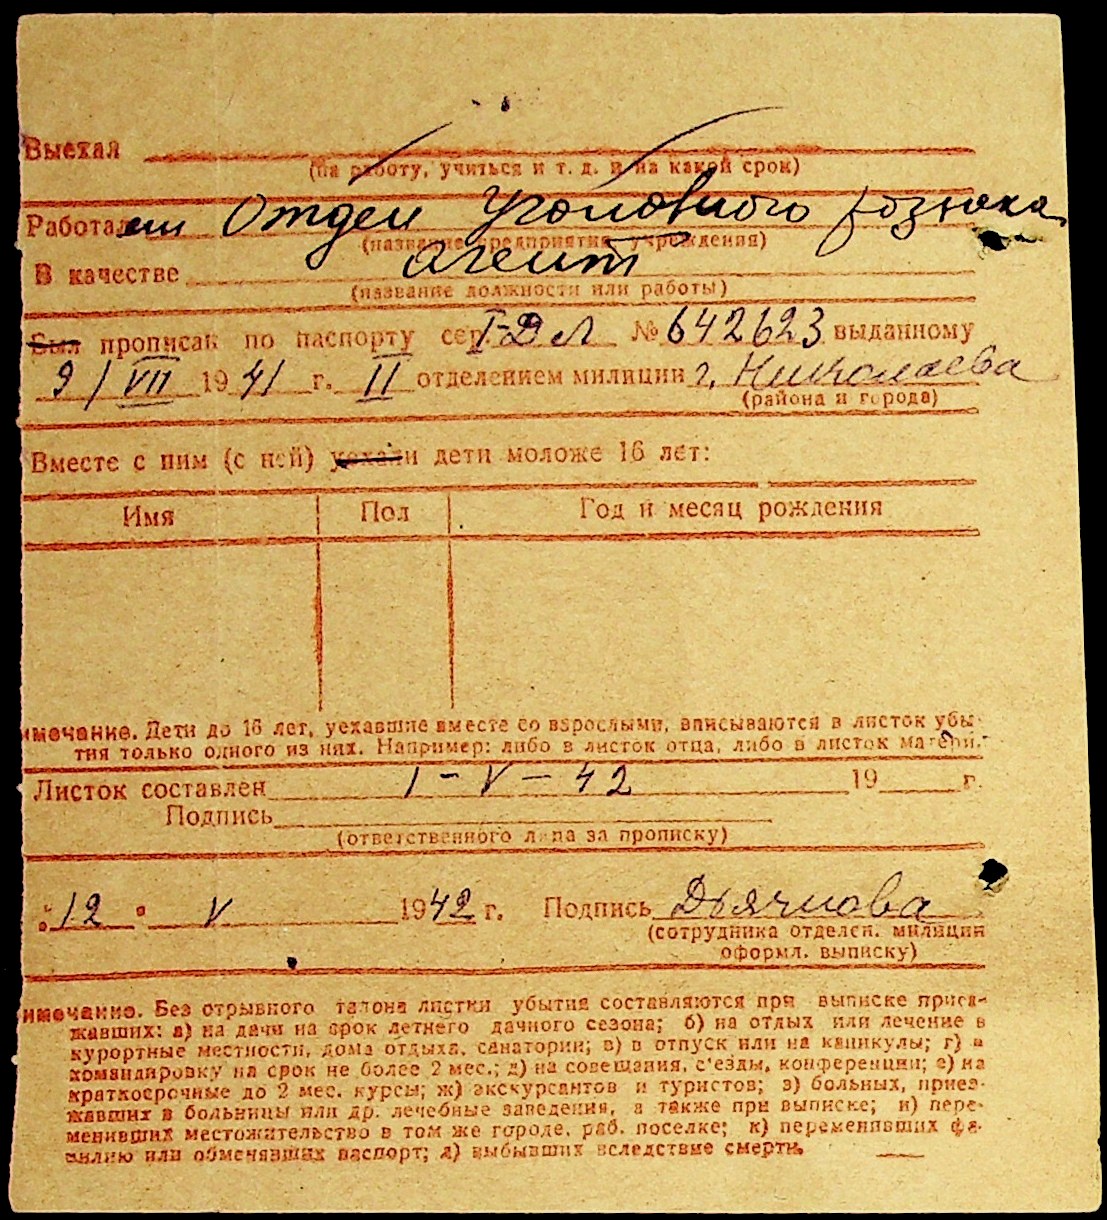 Выехал
(на работу, учиться и т. д. и на какой срок)
Работал Отдел Уголовного розыска
(название предприятия, учреждения)
В качестве агент
(название должности или работы)
Был прописан по паспорту сер. № 642623 выданному
9/VII 1941 г. II отделением милиции г. Николаева
(района и города)
Вместе с ним (с ней) уехали дети моложе 16 лет:
Имя Пол Год и месяц рождения
имечание. Дети до 16 лет, уехавшие вместе со взрослыми, вписываются в листок убы-
тия только одного из них. Например: либо в листок отца, либо в листок матери.
Листок составлен I-V-42 19 г.
Подпись
(ответственного лица за прописку)
"12" V 1942 г. Подпись Дьячкова
(сотрудника отделен. милиции
оформл. выписку)
имечание. Без отрывного талона листки убытия составляются при выписке приез-
жавших: а) на дачи на срок летнего дачного сезона; б) на отдых или лечение в
курортные местности, дома отдыха, санатории; в) в отпуск или на каникулы; г) в
командировку на срок не более 2 мес.; д) на совещания, с'езды, конференции; е) на
краткосрочные до 2 мес. курсы; ж) экскурсантов и туристов; з) больных, приез-
жавших в больницы или др. лечебные заведения, а также при выписке; и) пере-
менивших местожительство в том же городе, раб. поселке; к) переменивших фа-
милию или обменявших паспорт; л) выбывших вследствие смерти.